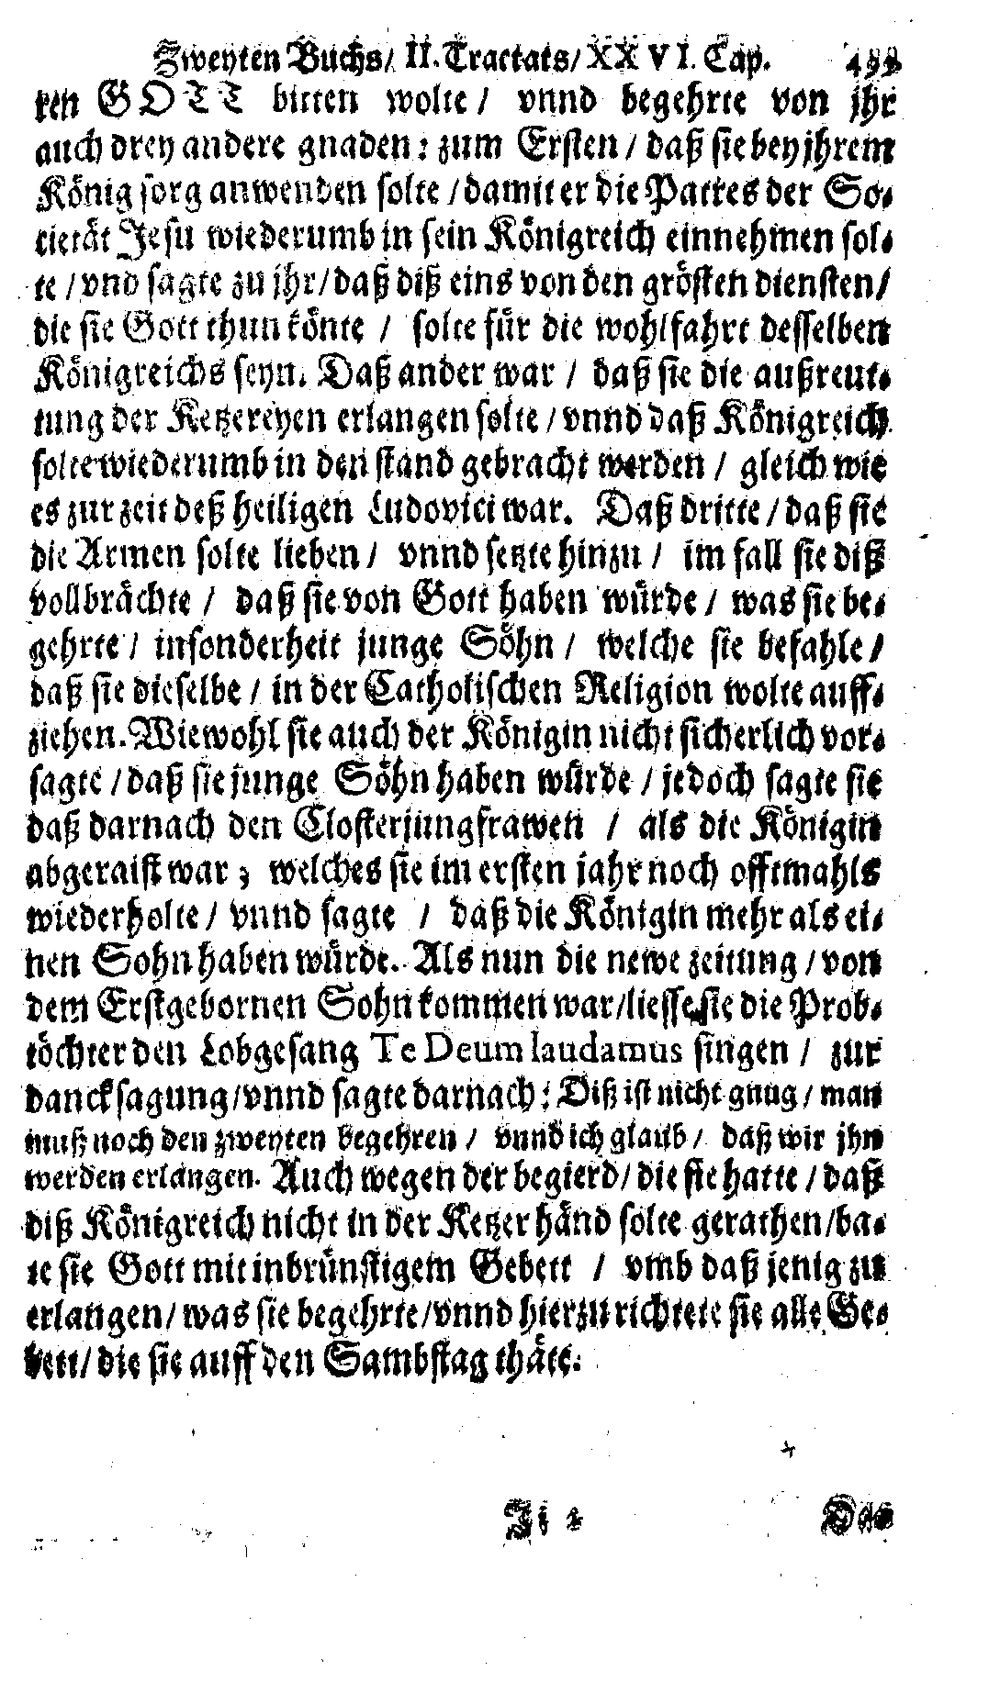 Zweyten Buchs/ II. Tractats/ XXVI. Cap.
ren GOTT bitten wolte / vnnd begehrte von jhr
auch drey andere gnaden: zum Ersten / daß sie bey jhrem
König sorg anwenden solte / damit er die Patres der So-
cietät Jesu wiederumb in sein Königreich einnehmen sol-
te / vnd sagte zu jhr / daß diß eins von den grösten diensten /
die sie Gott thun könte / solte für die wohlfahrt desselben
Königreichs seyn. Daß ander war / daß sie die außreut-
tung der Ketzereyen erlangen solte / vnnd daß Königreich
solte wiederumb in den stand gebracht werden / gleich wie
es zur zeit deß heiligen Ludovici war. Daß dritte / daß sie
die Armen solte lieben / vnnd setzte hinzu / im fall sie diß
vollbrächte / daß sie von Gott haben würde / was sie be-
gehrte / insonderheit junge Söhn / welche sie befahle /
daß sie dieselbe / in der Catholischen Religion wolte auff-
ziehen. Wiewohl sie auch der Königin nicht sicherlich vor-
sagte / daß sie junge Söhn haben würde / jedoch sagte sie
daß darnach den Closterjungfrawen / als die Königin
abgeraist war; welches sie im ersten jahr noch offtmahls
wiederholte / vnnd sagte / daß die Königin mehr als ei-
nen Sohn haben würde. Als nun die newe zeitung / von
dem Erstgebornen Sohn kommen war / liesse sie die Prob-
töchter den Lobgesang Te Deum laudamus singen / zur
dancksagung / vnnd sagte darnach: Diß ist nicht gnug / man
muß noch den zweyten begehren / vnnd ich glaub / daß wir jhn
werden erlangen. Auch wegen der begierd / die sie hatte / daß
diß Königreich nicht in der Ketzer händ solte gerathen / ba-
te sie Gott mit inbrünstigem Gebett / vmb daß jenig zu
erlangen / was sie begehrte / vnnd hierzu richtete sie alle Ge-
bett / die sie auff den Sambstag thäte.
Ji 2 Das